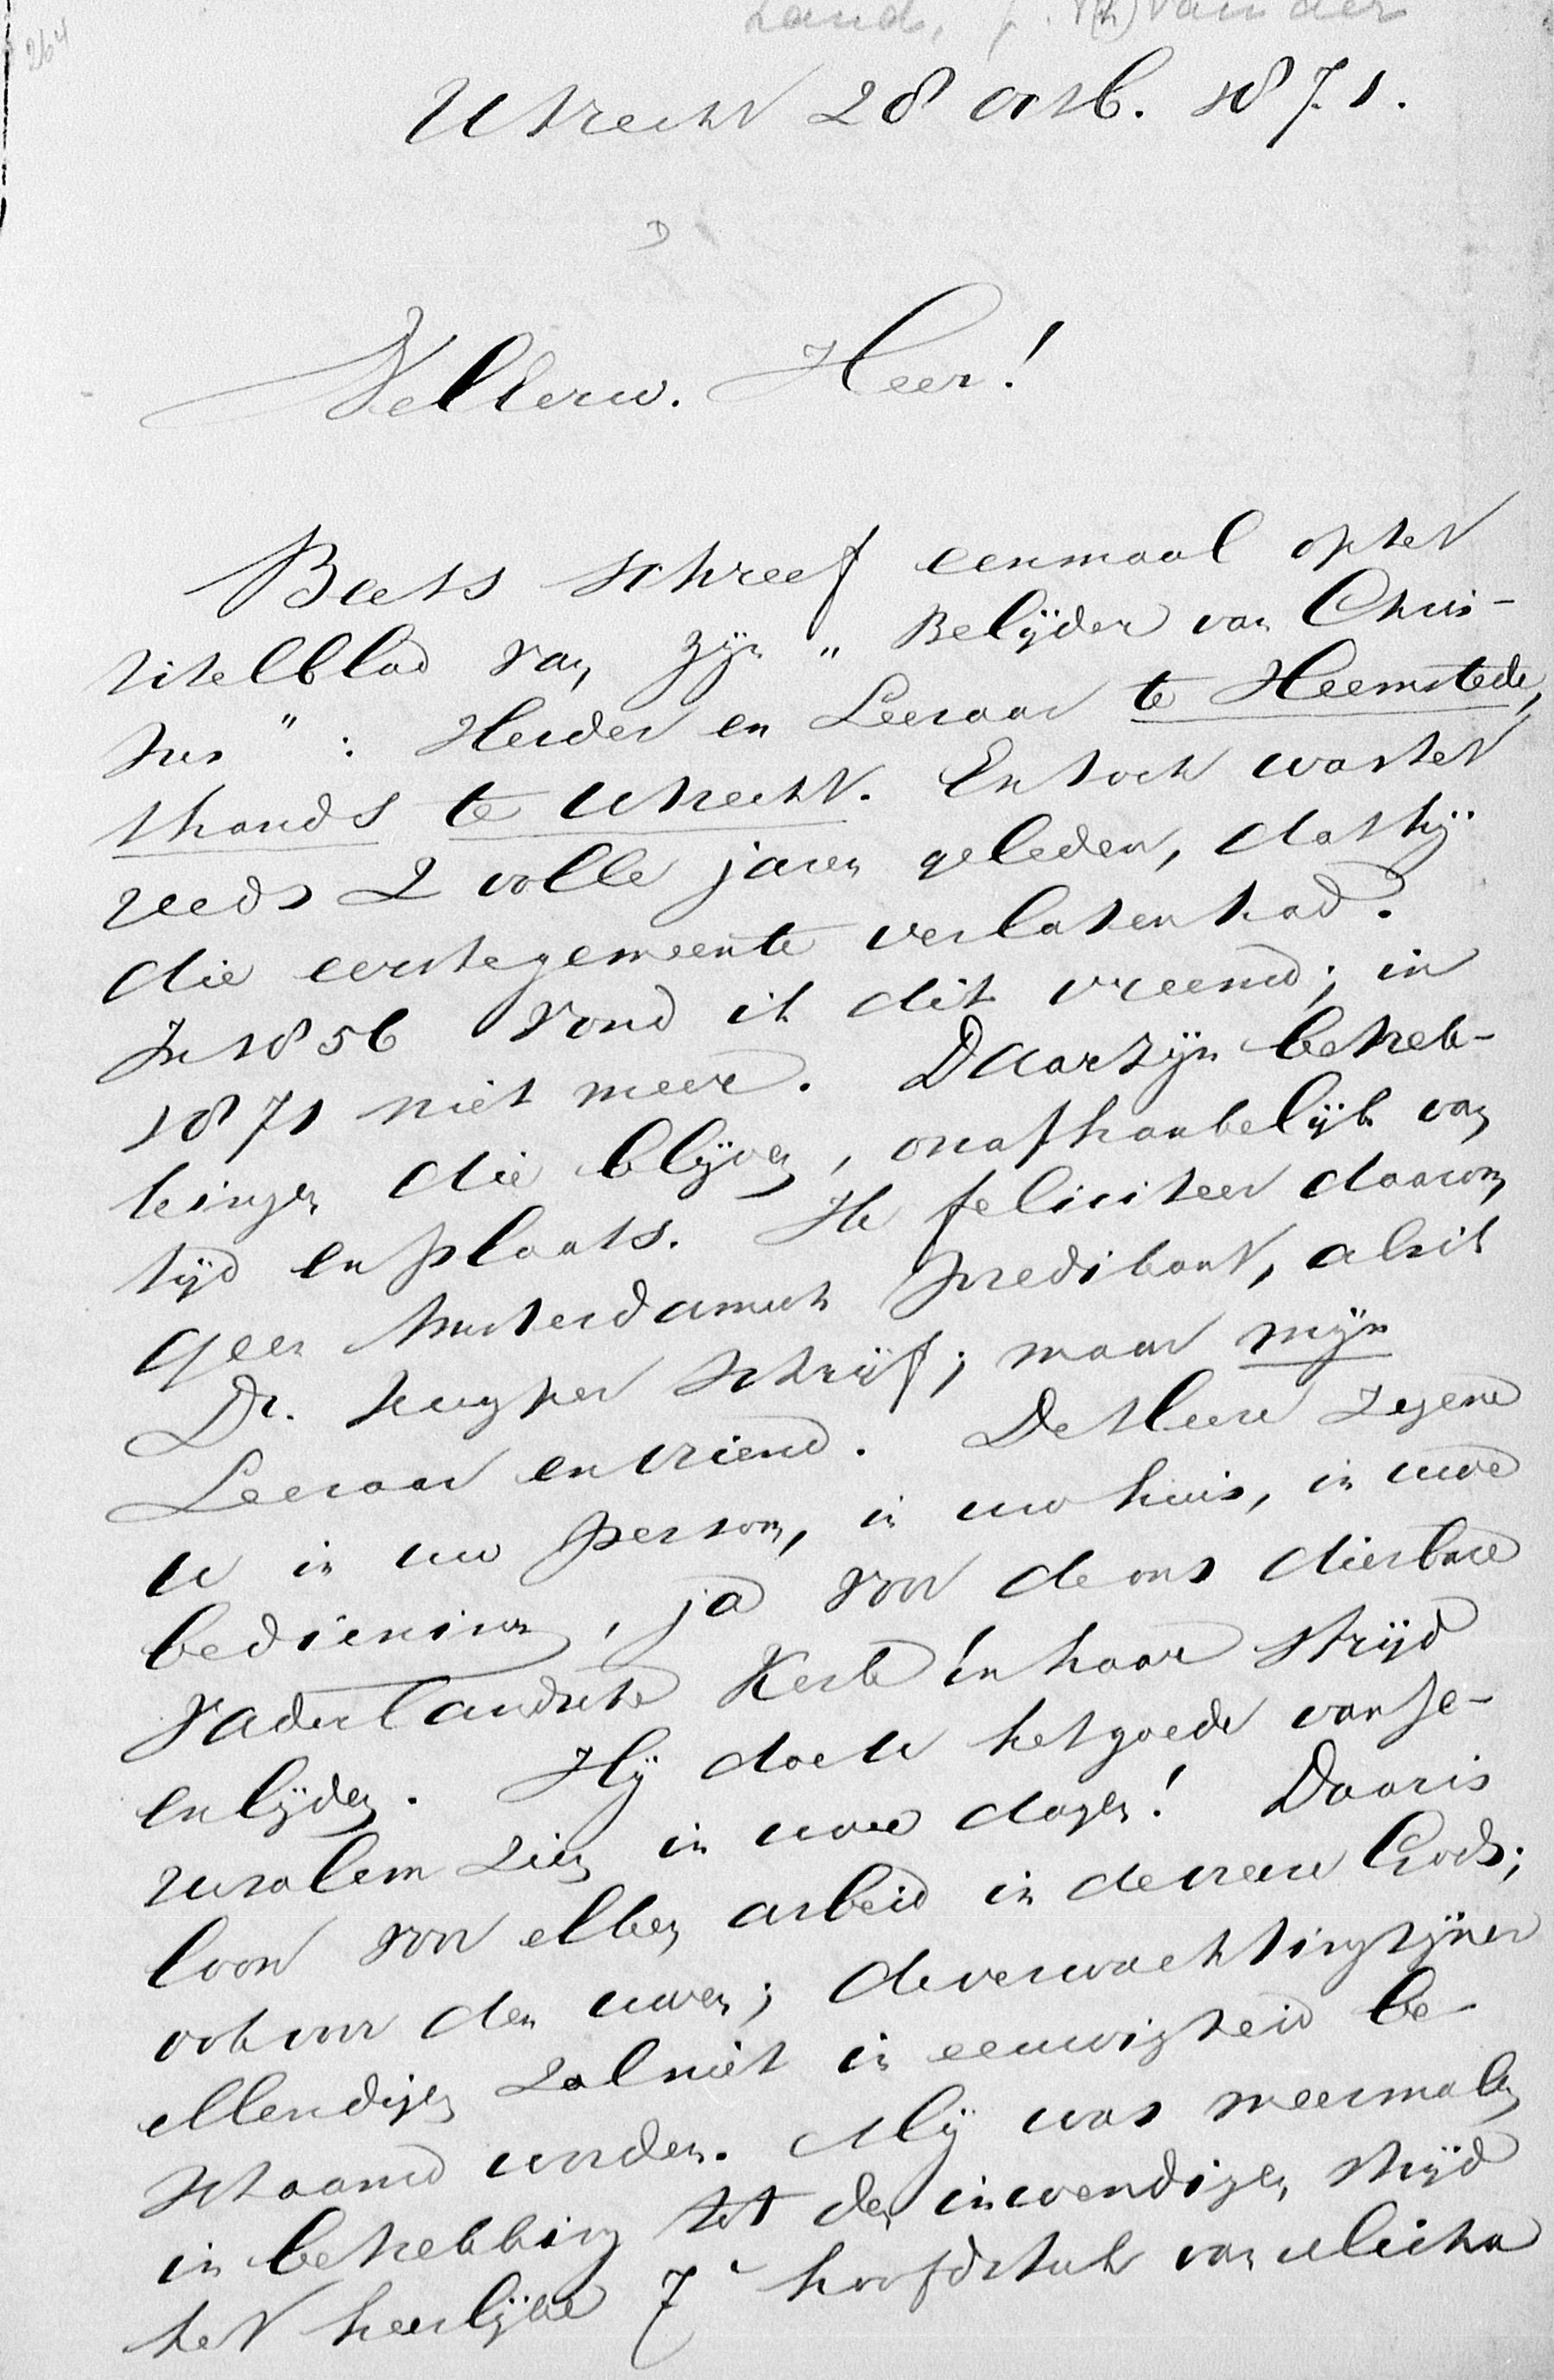 264
Land, v.d.
Utrecht 28 Octb. 1871.
WelEerw. Heer!
Beets schreef eenmaal op het
titelblad van zijn „Belijder van Chris-
tus": Herder en Leeraar te Heemstede,
thands te Utrecht. En toch was het
reeds 2 volle jaren geleden, dat hij
die eerste gemeente verlaten had.
In 1856 vond ik dit vreemd; in
1871 niet meer. Daar zijn betrek-
kingen die blijven, onafhankelijk van
tijd en plaats. Ik feliciteer daarom
geen Amsterdamsch predikant, als ik
Dr. Kuyper schrijf; maar mijn
Leeraar en vriend. De Heere zegene
u in uw persoon, in uw huis, in uwe
bediening, ja voor de ons dierbare
vaderlandsche Kerk in haar strijd
en lijden. Hij doe u het goede van Je-
rusalem zien in uwe dagen! Daar is
loon voor elken arbeid in de vreeze Gods;
ook voor den uwen; de verwachting zijner
ellendigen zal niet in eeuwigheid be-
schaamd worden. Mij was meermalen
in betrekking tot den inwendigen strijd
het heerlijke 7e hoofdstuk van Micha